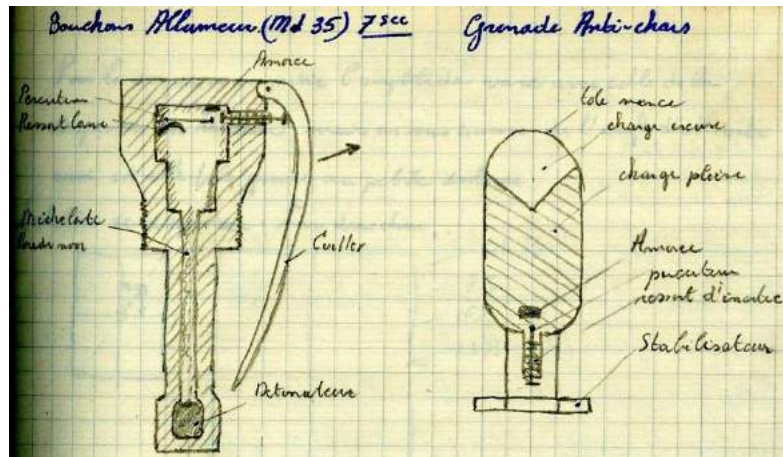 Bouchons Allumeurs (Md 35) 7 sec
Amorce
Percuteur
Ressort lame
Mèche lente
Poudre noire
Cuiller
Détonateur
Grenade Anti-chars
tole mince
charge creuse
charge pleine
Amorce
percuteur
ressort d'inertie
Stabilisateur